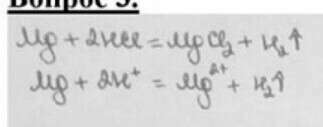 Вопрос 3.
Mg + 2HCl = MgCl₂ + H₂↑
Mg + 2H⁺ = Mg²⁺ + H₂↑